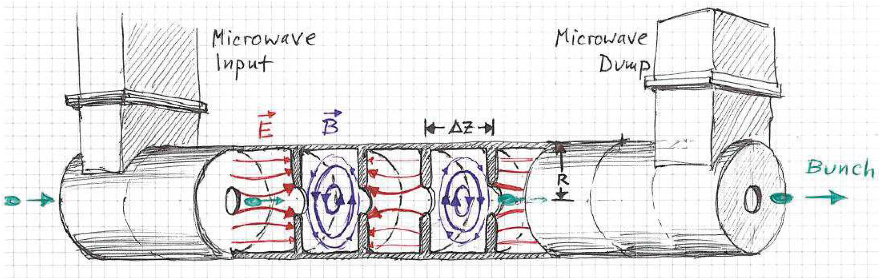 Microwave
Input
Microwave
Dump
E
B
ΔZ
R
Bunch